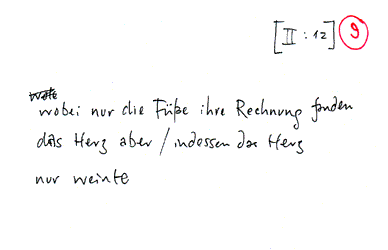 [II : 12] 9
wobei nur die Füße ihre Rechnung fanden
das Herz aber / indessen das Herz
nur weinte